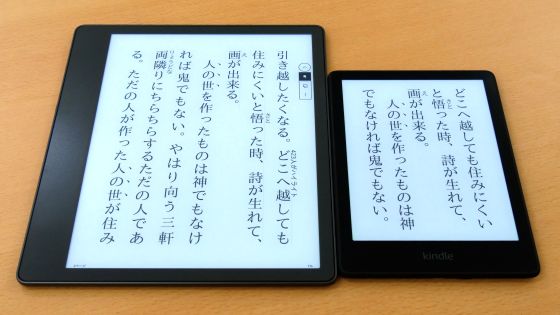 引き越したくなる。どこへ越しても
住みにくいと悟った時、詩が生れて、
画が出来る。
人の世を作ったものは神でもなけ
れば鬼でもない。やはり向う三軒
両隣りにちらちらするただの人であ
る。ただの人が作った人の世が住み
どこへ越しても住みにくい
と悟った時、詩が生れて、
画が出来る。
人の世を作ったものは神
でもなければ鬼でもない。
kindle